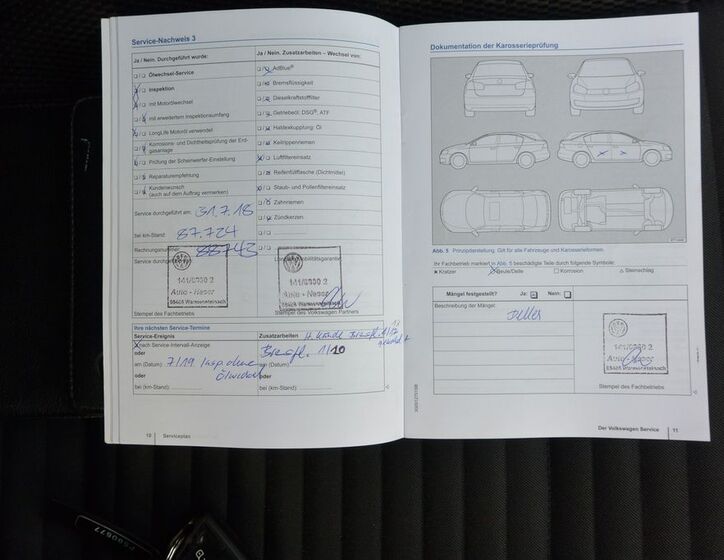 Service-Nachweis 3
Ja / Nein. Durchgeführt wurde:
Ölwechsel-Service
Inspektion
mit Motorölwechsel
mit erweitertem Inspektionsumfang
LongLife Motoröl verwendet
Korrosions- und Dichtheitsprüfung der Erd-
gasanlage
Prüfung der Scheinwerfer-Einstellung
Reparaturempfehlung
Kundenwunsch
(auch auf dem Auftrag vermerken)
Service durchgeführt am: 31.7.18
bei km-Stand: 87.724
Rechnungsnummer: 88743
Service durchgeführt
141/6330 2
Auto - Neser
Stempel des Fachbetriebs
Ja / Nein. Zusatzarbeiten – Wechsel von:
AdBlue®
Bremsflüssigkeit
Dieselkraftstofffilter
Getriebeöl: DSG®, ATF
Haldexkupplung: Öl
Keilrippenriemen
Luftfiltereinsatz
Reifenfüllflasche (Dichtmittel)
Staub- und Pollenfiltereinsatz
Zahnriemen
Zündkerzen
141/6330 2
Auto - Neser
Stempel des Volkswagen Partners
Ihre nächsten Service-Termine
Service-Ereignis
nach Service-Intervall-Anzeige
oder
am (Datum) 7/19 Insp. ohne
Ölwechsel
oder
bei (km-Stand):
Zusatzarbeiten
am (Datum)
oder
bei (km-Stand):
10 Serviceplan
Dokumentation der Karosserieprüfung
Abb. 5 Prinzipdarstellung. Gilt für alle Fahrzeuge und Karosserieformen.
Ihr Fachbetrieb markiert in Abb. 5 beschädigte Teile durch folgende Symbole:
Kratzer Beule/Delle Korrosion Steinschlag
Mängel festgestellt? Ja: Nein:
Beschreibung der Mängel:
Dellen
141/6330 2
Auto - Neser
Stempel des Fachbetriebs
Der Volkswagen Service 11